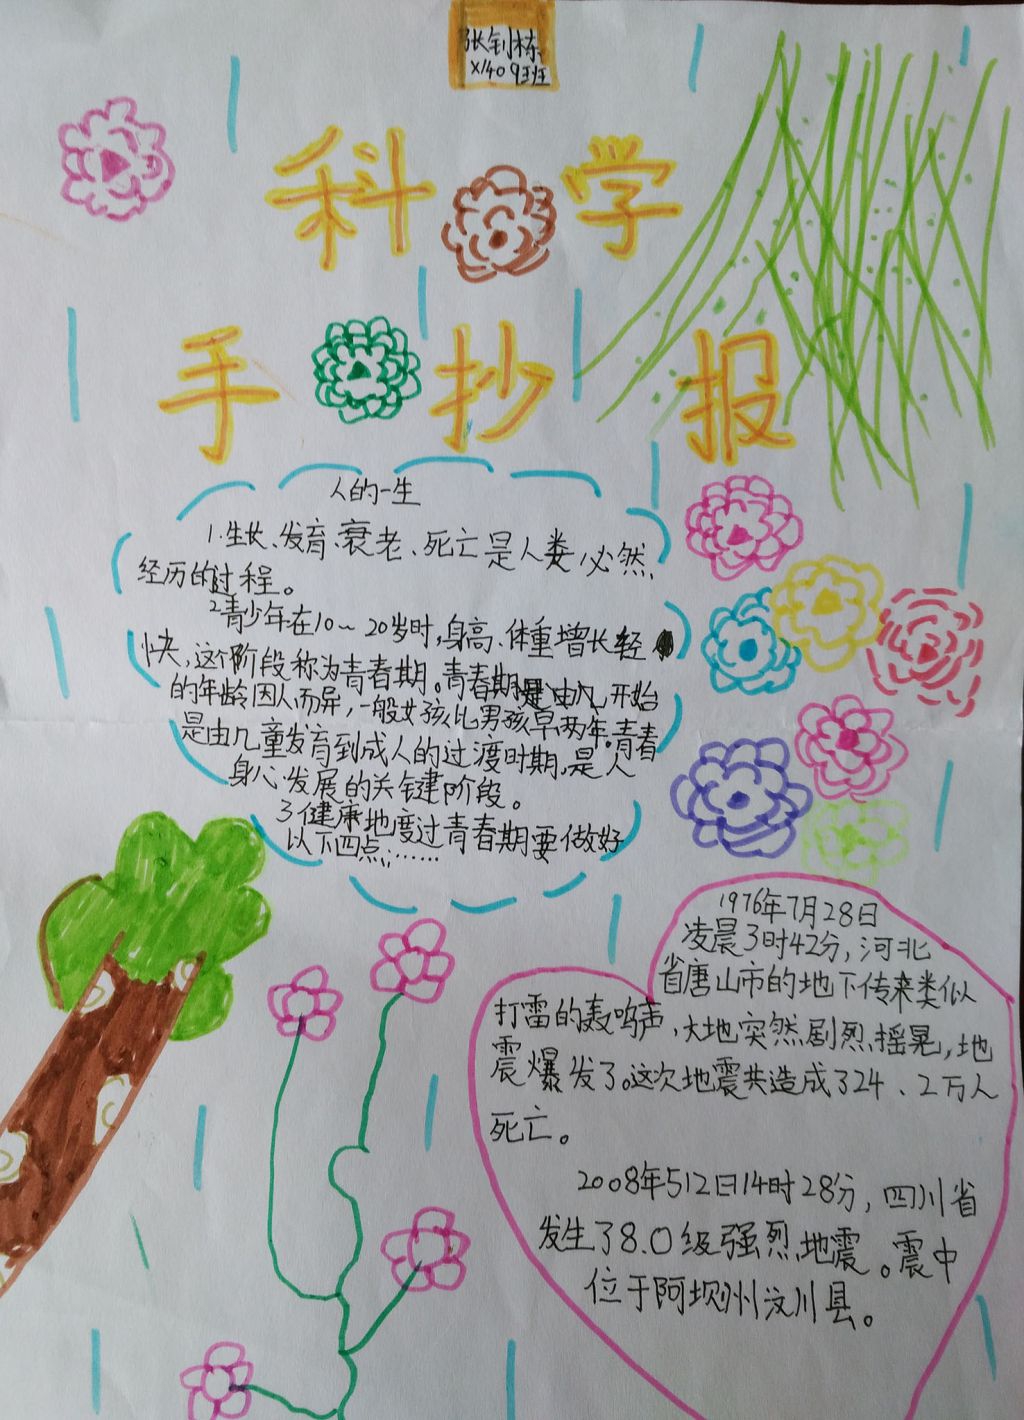 张钊栋
X1409班
科学
手抄报
人的一生
1.生长、发育、衰老、死亡是人类必然
经历的过程。
2青少年在10~20岁时,身高、体重增长轻
快,这个阶段称为青春期。青春期是由儿开始
的年龄因人而异,一般女孩比男孩早两年。青春
是由儿童发育到成人的过渡时期,是人
身心发展的关键阶段。
3健康地度过青春期要做好
以下四点:……
1976年7月28日
凌晨3时42分,河北
省唐山市的地下传来类似
打雷的轰鸣声,大地突然剧烈摇晃,地
震爆发了。这次地震共造成了24、2万人
死亡。
2008年512日14时28分,四川省
发生了8.0级强烈地震。震中
位于阿坝州汶川县。